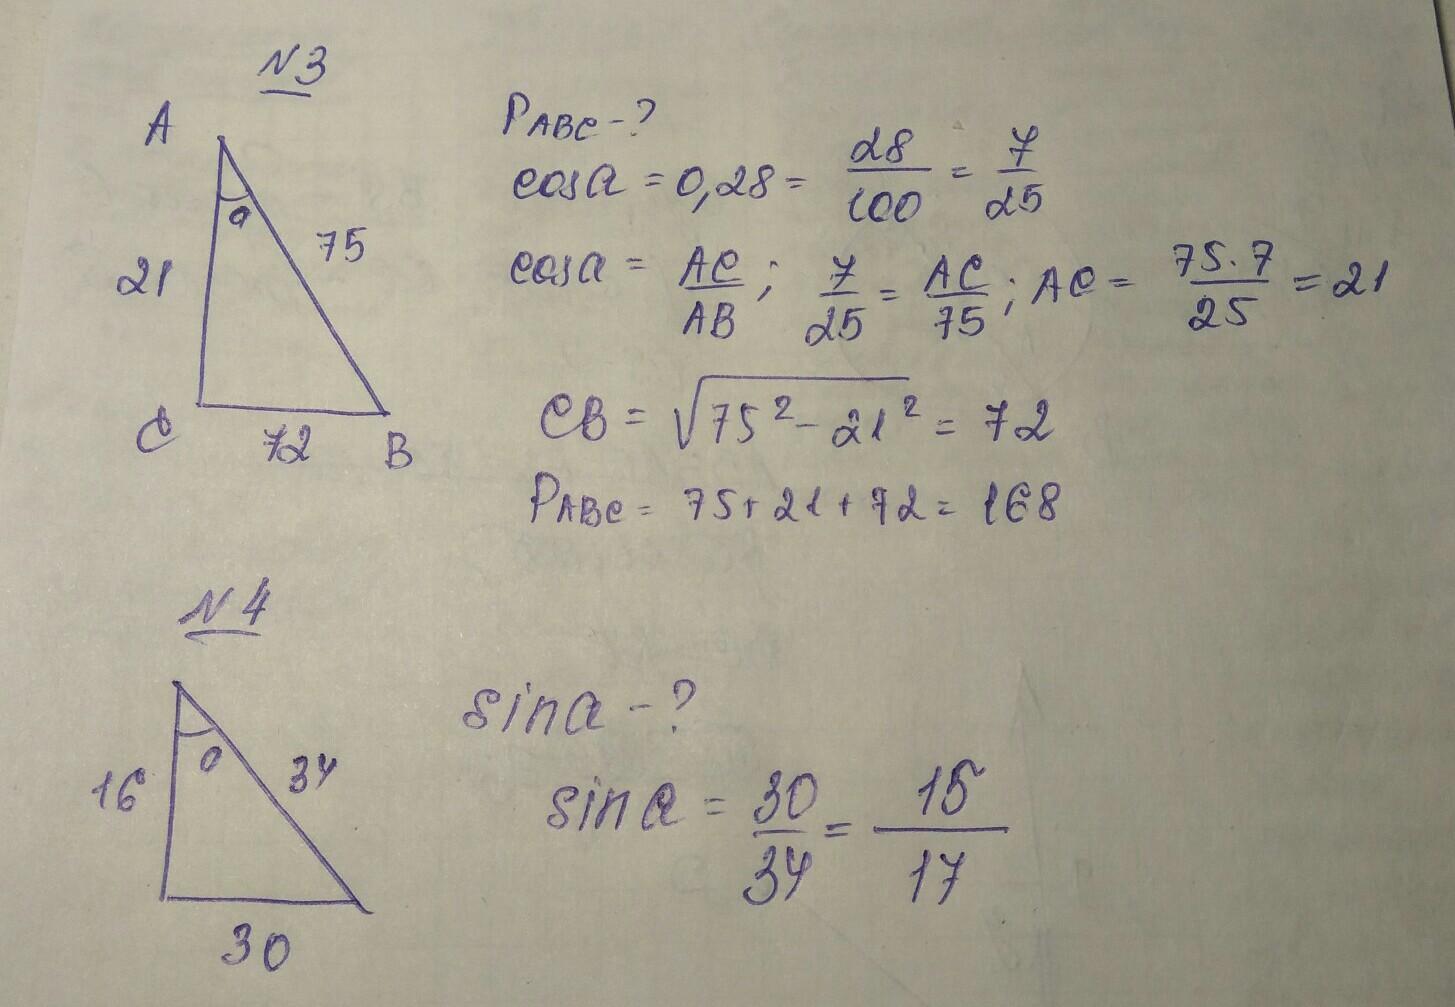 N3
A
a
21
75
C
72
B
PABC - ?
cos a = 0,28 = 28/100 = 7/25
cos a = AC/AB ; 7/25 = AC/75 ; AC = 75·7/25 = 21
CB = √75² - 21² = 72
PABC = 75 + 21 + 72 = 168
N4
a
16
34
30
sin a - ?
sin a = 30/34 = 15/17